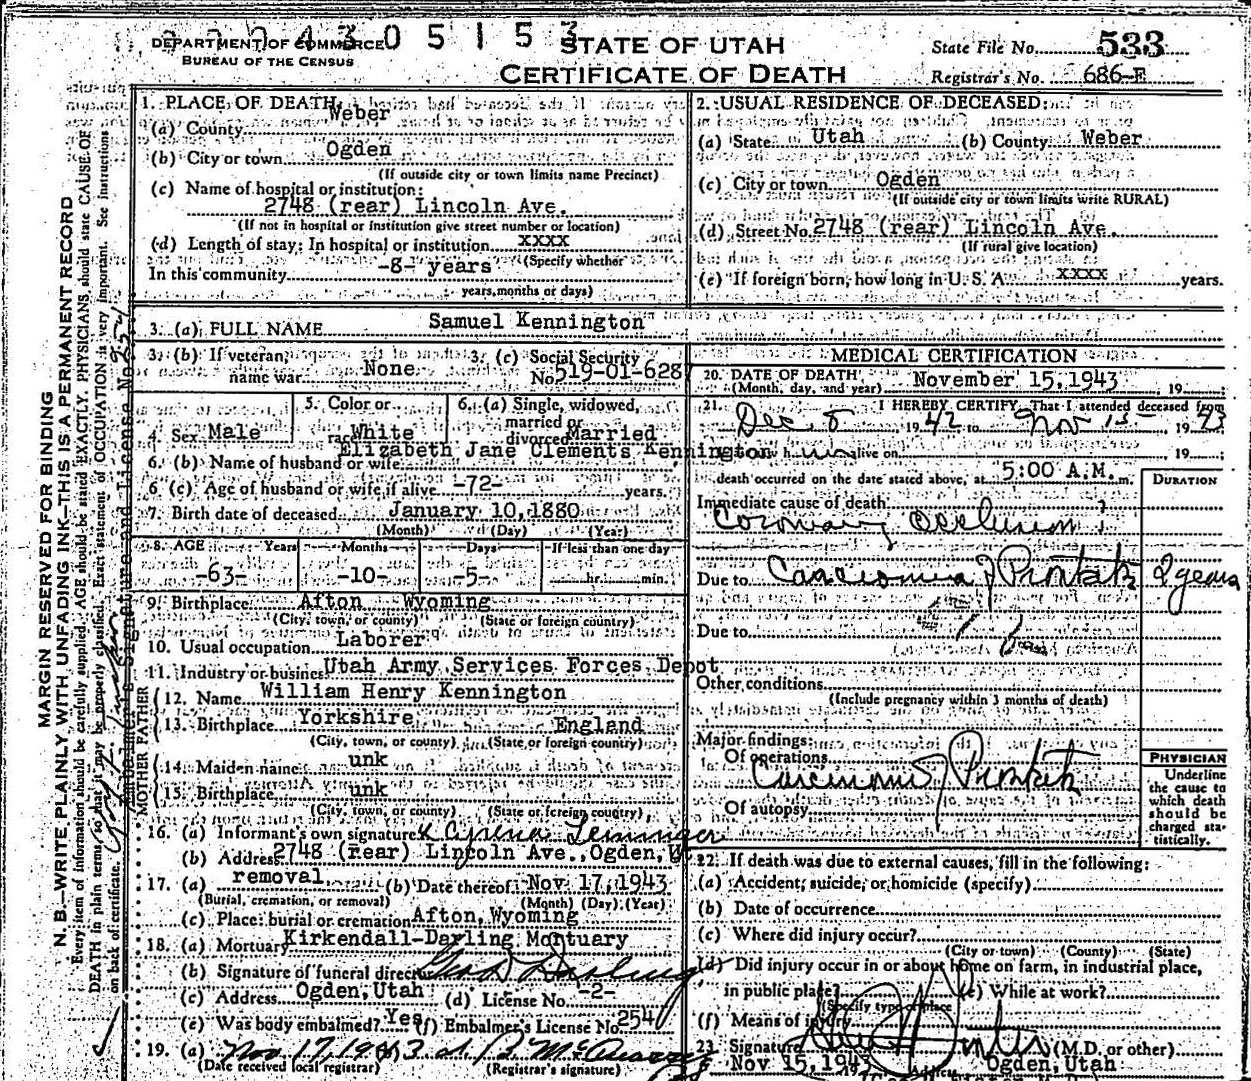 DEPARTMENT OF COMMERCE
BUREAU OF THE CENSUS
4 3 0 5 1 5 3
STATE OF UTAH
CERTIFICATE OF DEATH
State File No. 533
Registrar's No. 686-E
MARGIN RESERVED FOR BINDING
N. B.—WRITE PLAINLY WITH UNFADING INK—THIS IS A PERMANENT RECORD
Every item of information should be carefully supplied. AGE should be stated EXACTLY. PHYSICIANS should state CAUSE OF
DEATH in plain terms, so that it may be properly classified. Exact statement of OCCUPATION is very important. See instructions
on back of certificate.
1. PLACE OF DEATH:
(a) County Weber
(b) City or town Ogden
(If outside city or town limits name Precinct)
(c) Name of hospital or institution:
2748 (rear) Lincoln Ave.
(If not in hospital or institution give street number or location)
(d) Length of stay: In hospital or institution xxxx
(Specify whether
In this community -8- years
years, months or days)
2. USUAL RESIDENCE OF DECEASED:
(a) State Utah (b) County Weber
(c) City or town Ogden
(If outside city or town limits write RURAL)
(d) Street No. 2748 (rear) Lincoln Ave.
(If rural give location)
(e) If foreign born, how long in U. S. A. xxxx years.
3. (a) FULL NAME Samuel Kennington
3. (b) If veteran, name war None
3. (c) Social Security No. 519-01-628
4. Sex Male
5. Color or race White
6. (a) Single, widowed, married or divorced Married
6. (b) Name of husband or wife Elizabeth Jane Clements Kennington
6 (c) Age of husband or wife, if alive -72- years.
7. Birth date of deceased January 10, 1880
(Month) (Day) (Year)
8. AGE Years Months Days If less than one day
-63- -10- -5- hr. min.
9. Birthplace Afton Wyoming
(City, town, or county) (State or foreign country)
10. Usual occupation Laborer
11. Industry or business Utah Army Services Forces Depot
FATHER
12. Name William Henry Kennington
13. Birthplace Yorkshire England
(City, town, or county) (State or foreign country)
MOTHER
14. Maiden name unk
15. Birthplace unk
(City, town, or county) (State or foreign country)
16. (a) Informant's own signature
(b) Address 2748 (rear) Lincoln Ave., Ogden, U
17. (a) removal (b) Date thereof Nov. 17, 1943
(Burial, cremation, or removal) (Month) (Day) (Year)
(c) Place: burial or cremation Afton, Wyoming
18. (a) Mortuary Kirkendall-Darling Mortuary
(b) Signature of funeral director Darling
(c) Address Ogden, Utah (d) License No. -2-
(e) Was body embalmed? Yes (f) Embalmer's License No 254
19. (a) Nov 17, 1943
(Date received local registrar) (Registrar's signature)
MEDICAL CERTIFICATION
20. DATE OF DEATH
(Month, day, and year) November 15, 1943, 19
21. I HEREBY CERTIFY, That I attended deceased from
Dec. 8 1942 to Nov 15 19
alive on 19
death occurred on the date stated above, at 5:00 A.M. m.
DURATION
Immediate cause of death
Coronary occlusion
Due to Carcinoma of Prostate 2 years
Due to
Other conditions
(Include pregnancy within 3 months of death)
Major findings:
Of operations Carcinoma of Prostate
Of autopsy
PHYSICIAN
Underline
the cause to
which death
should be
charged sta-
tistically.
22. If death was due to external causes, fill in the following:
(a) Accident, suicide, or homicide (specify)
(b) Date of occurrence
(c) Where did injury occur?
(City or town) (County) (State)
(d) Did injury occur in or about home on farm, in industrial place,
in public place? (e) While at work?
(Specify type of place
(f) Means of injury
23. Signature (M.D. or other)
Nov 15, 1943 Ogden, Utah